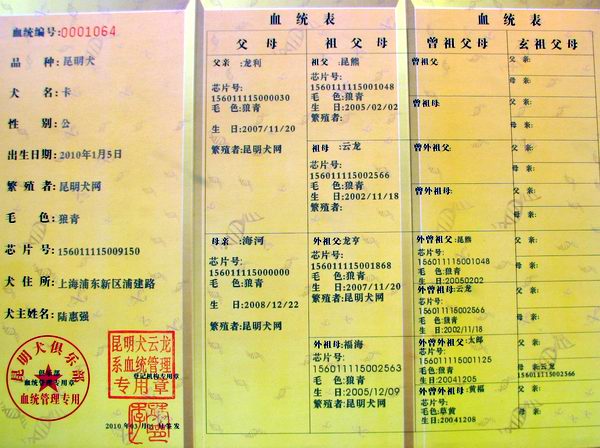 血统编号:0001064
品 种:昆明犬
犬 名:卡
性 别:公
出生日期:2010年1月5日
繁殖者:昆明犬网
毛 色:狼青
芯片号:156011115009150
犬住所:上海浦东新区浦建路
犬主姓名:陆惠强
昆明犬俱乐部
俱乐部
血统管理专用章
血统管理专用
昆明犬云龙
系血统管理
登记机构专用章
专用章
血统表
父母
祖父母
父亲:龙利
芯片号:
156011115000030
毛色:狼青
生日:2007/11/20
繁殖者:昆明犬网
祖父:昆熊
芯片号:
1560111115001048
毛色:狼青
生日:2005/02/02
繁殖者:
祖母:云龙
芯片号:
1560111115002566
毛色:狼青
生日:2002/11/18
繁殖者:
母亲:海河
芯片号:
156011115000000
毛色:狼青
生日:2008/12/22
繁殖者:昆明犬网
外祖父:龙亨
芯片号:
1560111115001868
毛色:狼青
生日:2007/11/20
繁殖者:昆明犬网
外祖母:福海
芯片号:
1560111115002563
毛色:狼青
生日:2005/12/09
繁殖者:昆明犬网
血统表
曾祖父母
玄祖父母
曾祖父:
父亲:
母亲:
曾祖母:
父亲:
母亲:
曾外祖父:
父亲:
母亲:
曾外祖母:
父亲:
母亲:
外曾祖父:昆熊
芯片号:
1560111115001048
毛色:狼青
生日:20050202
父亲:
母亲:
外曾祖母:云龙
芯片号:
1560111115002566
毛色:狼青
生日:2002/11/18
父亲:
母亲:
外曾外祖父:太郎
芯片号:
1560111115001125
毛色:狼青
生日:20041205
父亲:
母亲:云龙
1560111115002566
外曾外祖母:黄福
芯片号:
毛色:草黄
生日:20041208
父亲:
母亲: